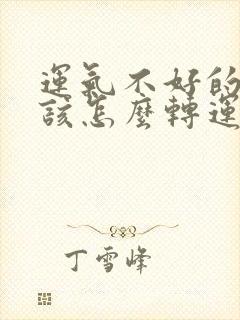 運氣不好的
該怎麼轉運
丁雪峰